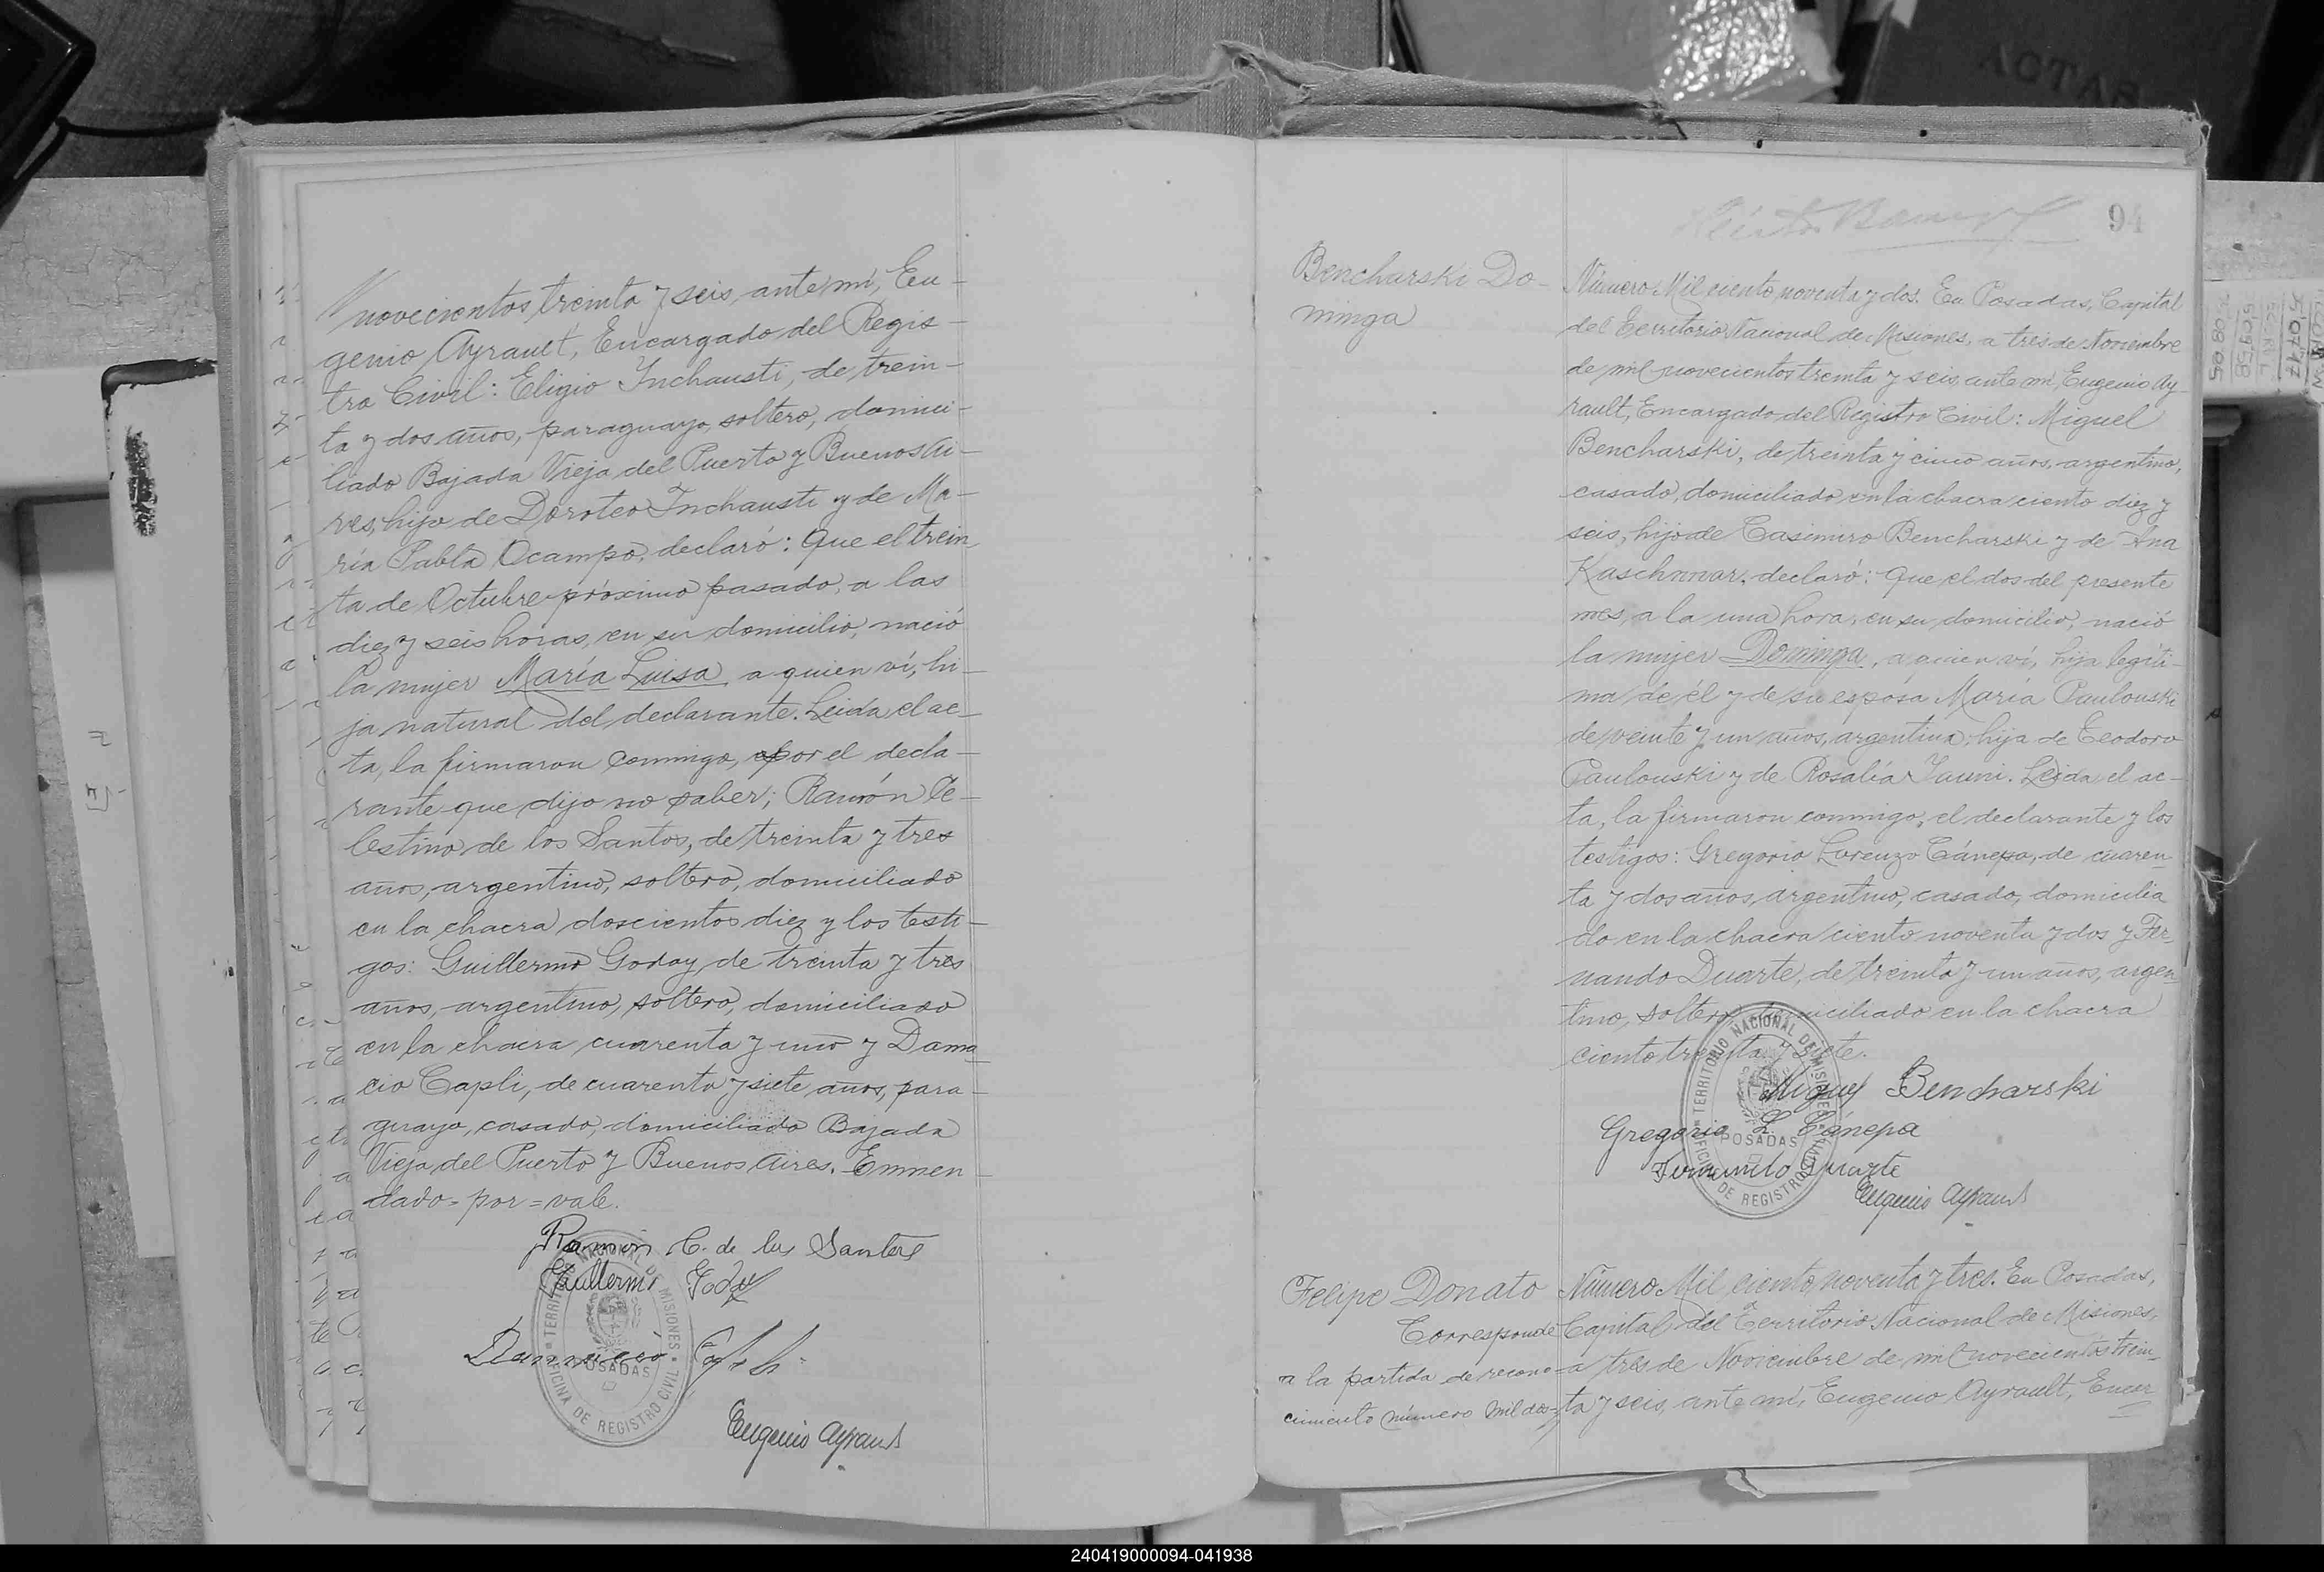 novecientos treinta y seis, ante mí, Eu-
genio Ayrault, Encargado del Regis-
tro Civil: Eligio Inchausti, de trein-
ta y dos años, paraguayo, soltero, domici-
liado Bajada Vieja del Puerto y Buenos Ai-
res, hijo de Doroteo Inchausti y de Ma-
ría Pabla Ocampo, declaró: Que el trein-
ta de Octubre próximo pasado, a las
diez y seis horas, en su domicilio, nació
la mujer María Luisa, a quien ví, hi-
ja natural del declarante. Leida el ac-
ta, la firmaron conmigo, por el decla-
rante que dijo no saber; Ramón Ce-
lestino de los Santos, de treinta y tres
años, argentino, soltero, domiciliado
en la chacra doscientos diez y los testi-
gos: Guillermo Godoy, de treinta y tres
años, argentino, soltero, domiciliado
en la chacra cuarenta y uno y Dama
cio Capli, de cuarenta y siete años, para-
guayo, casado, domiciliado Bajada
Vieja del Puerto y Buenos Aires. Enmen
dado=por=vale.
Ramon C. de los Santos
Guillermo Godoy
TERRITORIO NACIONAL DE MISIONES
POSADAS
OFICINA DE REGISTRO CIVIL
Eugenio Ayrault
94
Bencharski Do-
minga
Número Mil ciento noventa y dos. En Posadas, Capital
del Territorio Nacional de Misiones, a tres de Noviembre
de mil novecientos treinta y seis, ante mí, Eugenio Ay-
rault, Encargado del Registro Civil: Miguel
Bencharski, de treinta y cinco años, argentino,
casado, domiciliado en la chacra ciento diez y
seis, hijo de Casimiro Bencharski y de Ana
declaró: Que el dos del presente
mes, a la una hora, en su domicilio, nació
la mujer Dominga, a quien ví, hija legíti-
ma de él y de su esposa María Paulouski
de veinte y un años, argentina, hija de Teodoro
Paulouski y de Rosalía Leida el ac-
ta, la firmaron conmigo, el declarante y los
testigos: Gregorio Lorenzo Cánepa, de cuaren
ta y dos años, argentino, casado, domicilia
do en la chacra ciento noventa y dos y Fer-
nando Duarte, de treinta y un años, argen
tino, soltero, domiciliado en la chacra
ciento treinta y siete.
Miguel Bencharski
Gregorio L. Cánepa
Fernando Duarte
Eugenio Ayrault
TERRITORIO NACIONAL DE MISIONES
POSADAS
OFICINA DE REGISTRO CIVIL
Felipe Donato
Corresponde
a la partida de recono-
cimiento número mil dos-
Número Mil ciento noventa y tres. En Posadas,
Capital del Territorio Nacional de Misiones,
a tres de Noviembre de mil novecientos trein-
ta y seis, ante mí, Eugenio Ayrault, Encar
ACTAS
240419000094-041938